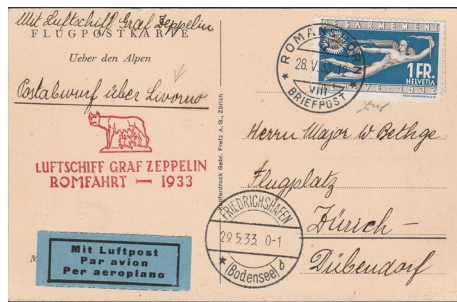 Mit Luftschiff Graf Zeppelin
FLUGPOSTKARTE
Ueber den Alpen
Postabwurf über Livorno
LUFTSCHIFF GRAF ZEPPELIN
ROMFAHRT — 1933
Mit Luftpost
Par avion
Per aeroplano
ROMANSHORN
28.V.33
VIII
BRIEFPOST
DESARMEMENT
1 FR.
HELVETIA
FRIEDRICHSHAFEN
29.5.33. 0-1
(Bodensee) b
Herrn Major W Bethge
Flugplatz
Zürich-
Dübendorf